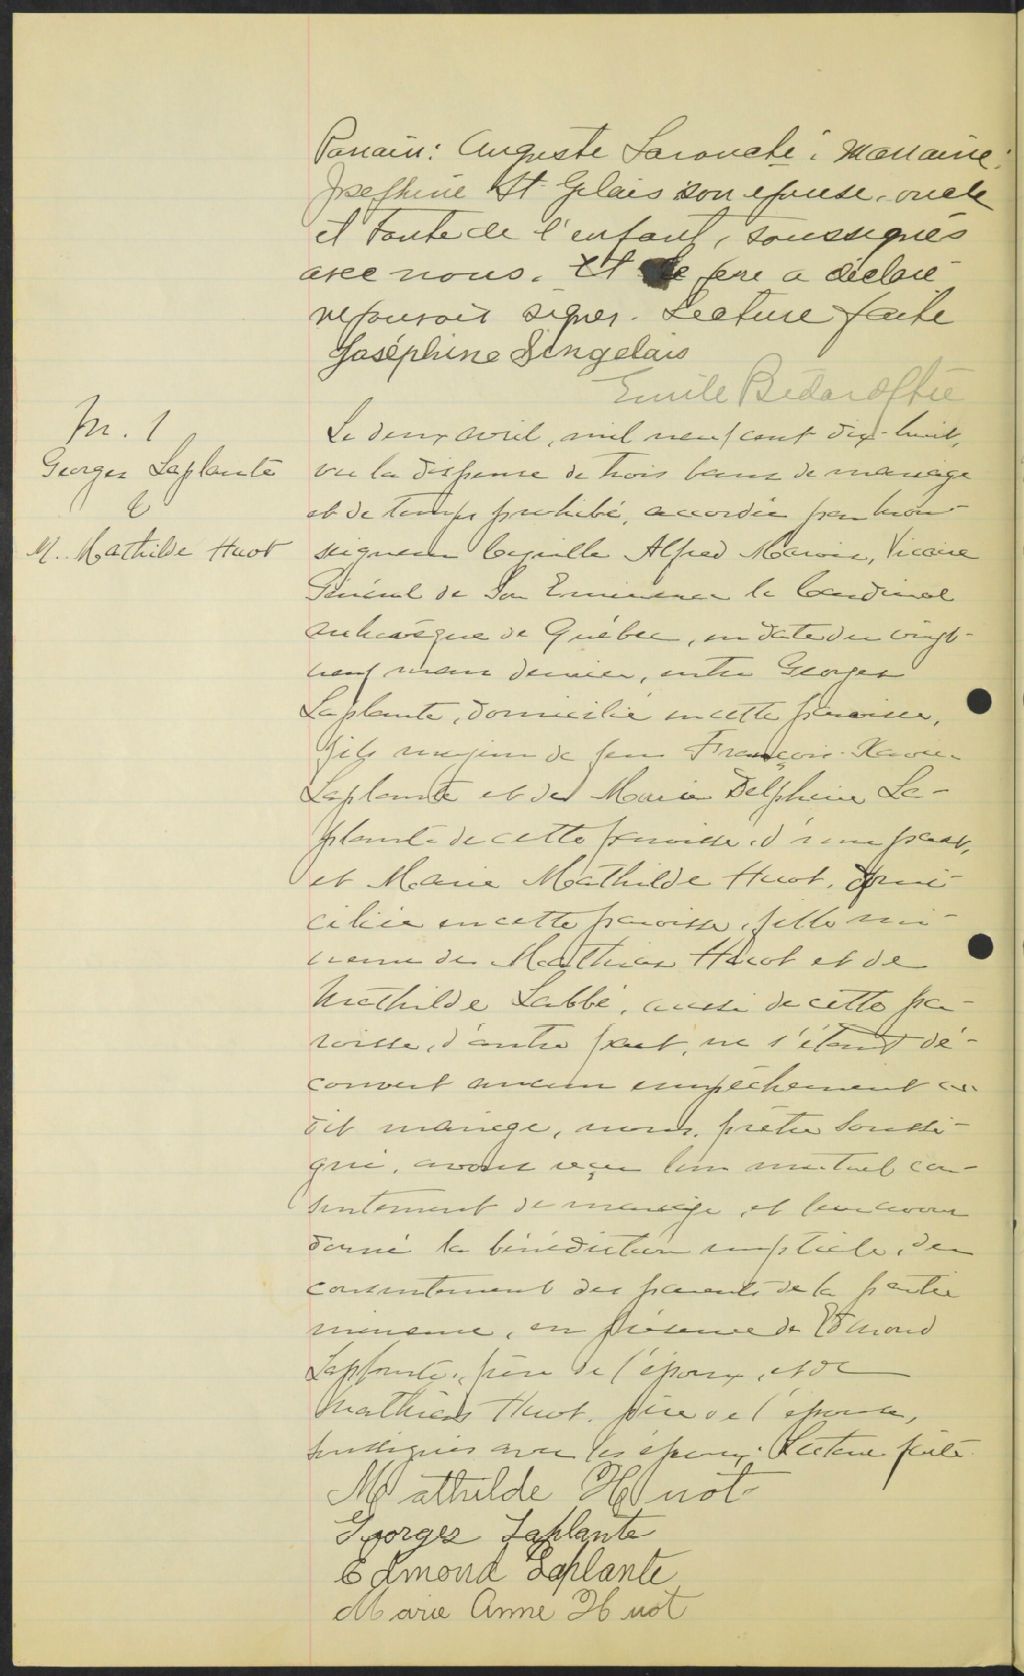 Parrain: Auguste Larouche; marraine:
Josephine St Gelais son epouse, oncle
et tante de l'enfant, soussignés
avec nous. Et le pere a déclaré
ne pouvoir signer. Lecture faite
Joséphine Singelais
Emile Bédard Ptre
M. 1
Georges Laplante
&
M. Mathilde Huot
Le deux avril, mil neuf cent dix-huit,
vu la dispense de trois bans de mariage
et de temps prohibé, accordée par Mon-
seigneur Cyrille Alfred Marois, Vicaire
Général de Son Eminence le Cardinal
archevêque de Québec, en date du vingt-
neuf mars dernier, entre Georges
Laplante, domicilié en cette paroisse,
fils majeur de feu François-Xavier
Laplante et de Marie Delphine La-
plante de cette paroisse d'une part,
et Marie Mathilde Huot, domi-
ciliée en cette paroisse, fille mi-
neure de Mathias Huot et de
Mathilde Labbé, aussi de cette pa-
roisse, d'autre part, ne s'étant dé-
couvert aucun empêchement au
dit mariage, nous, prêtre soussi-
gné, avons reçu leur mutuel con-
sentement de mariage, et leur avons
donné la bénédiction nuptiale, du
consentement des parents de la partie
mineure, en présence de Edmond
Laplante, frère de l'époux, et de
Mathias Huot, père de l'épouse,
soussignés avec les époux. Lecture faite.
Mathilde Huot
Georges Laplante
Edmond Laplante
Marie Anne Huot